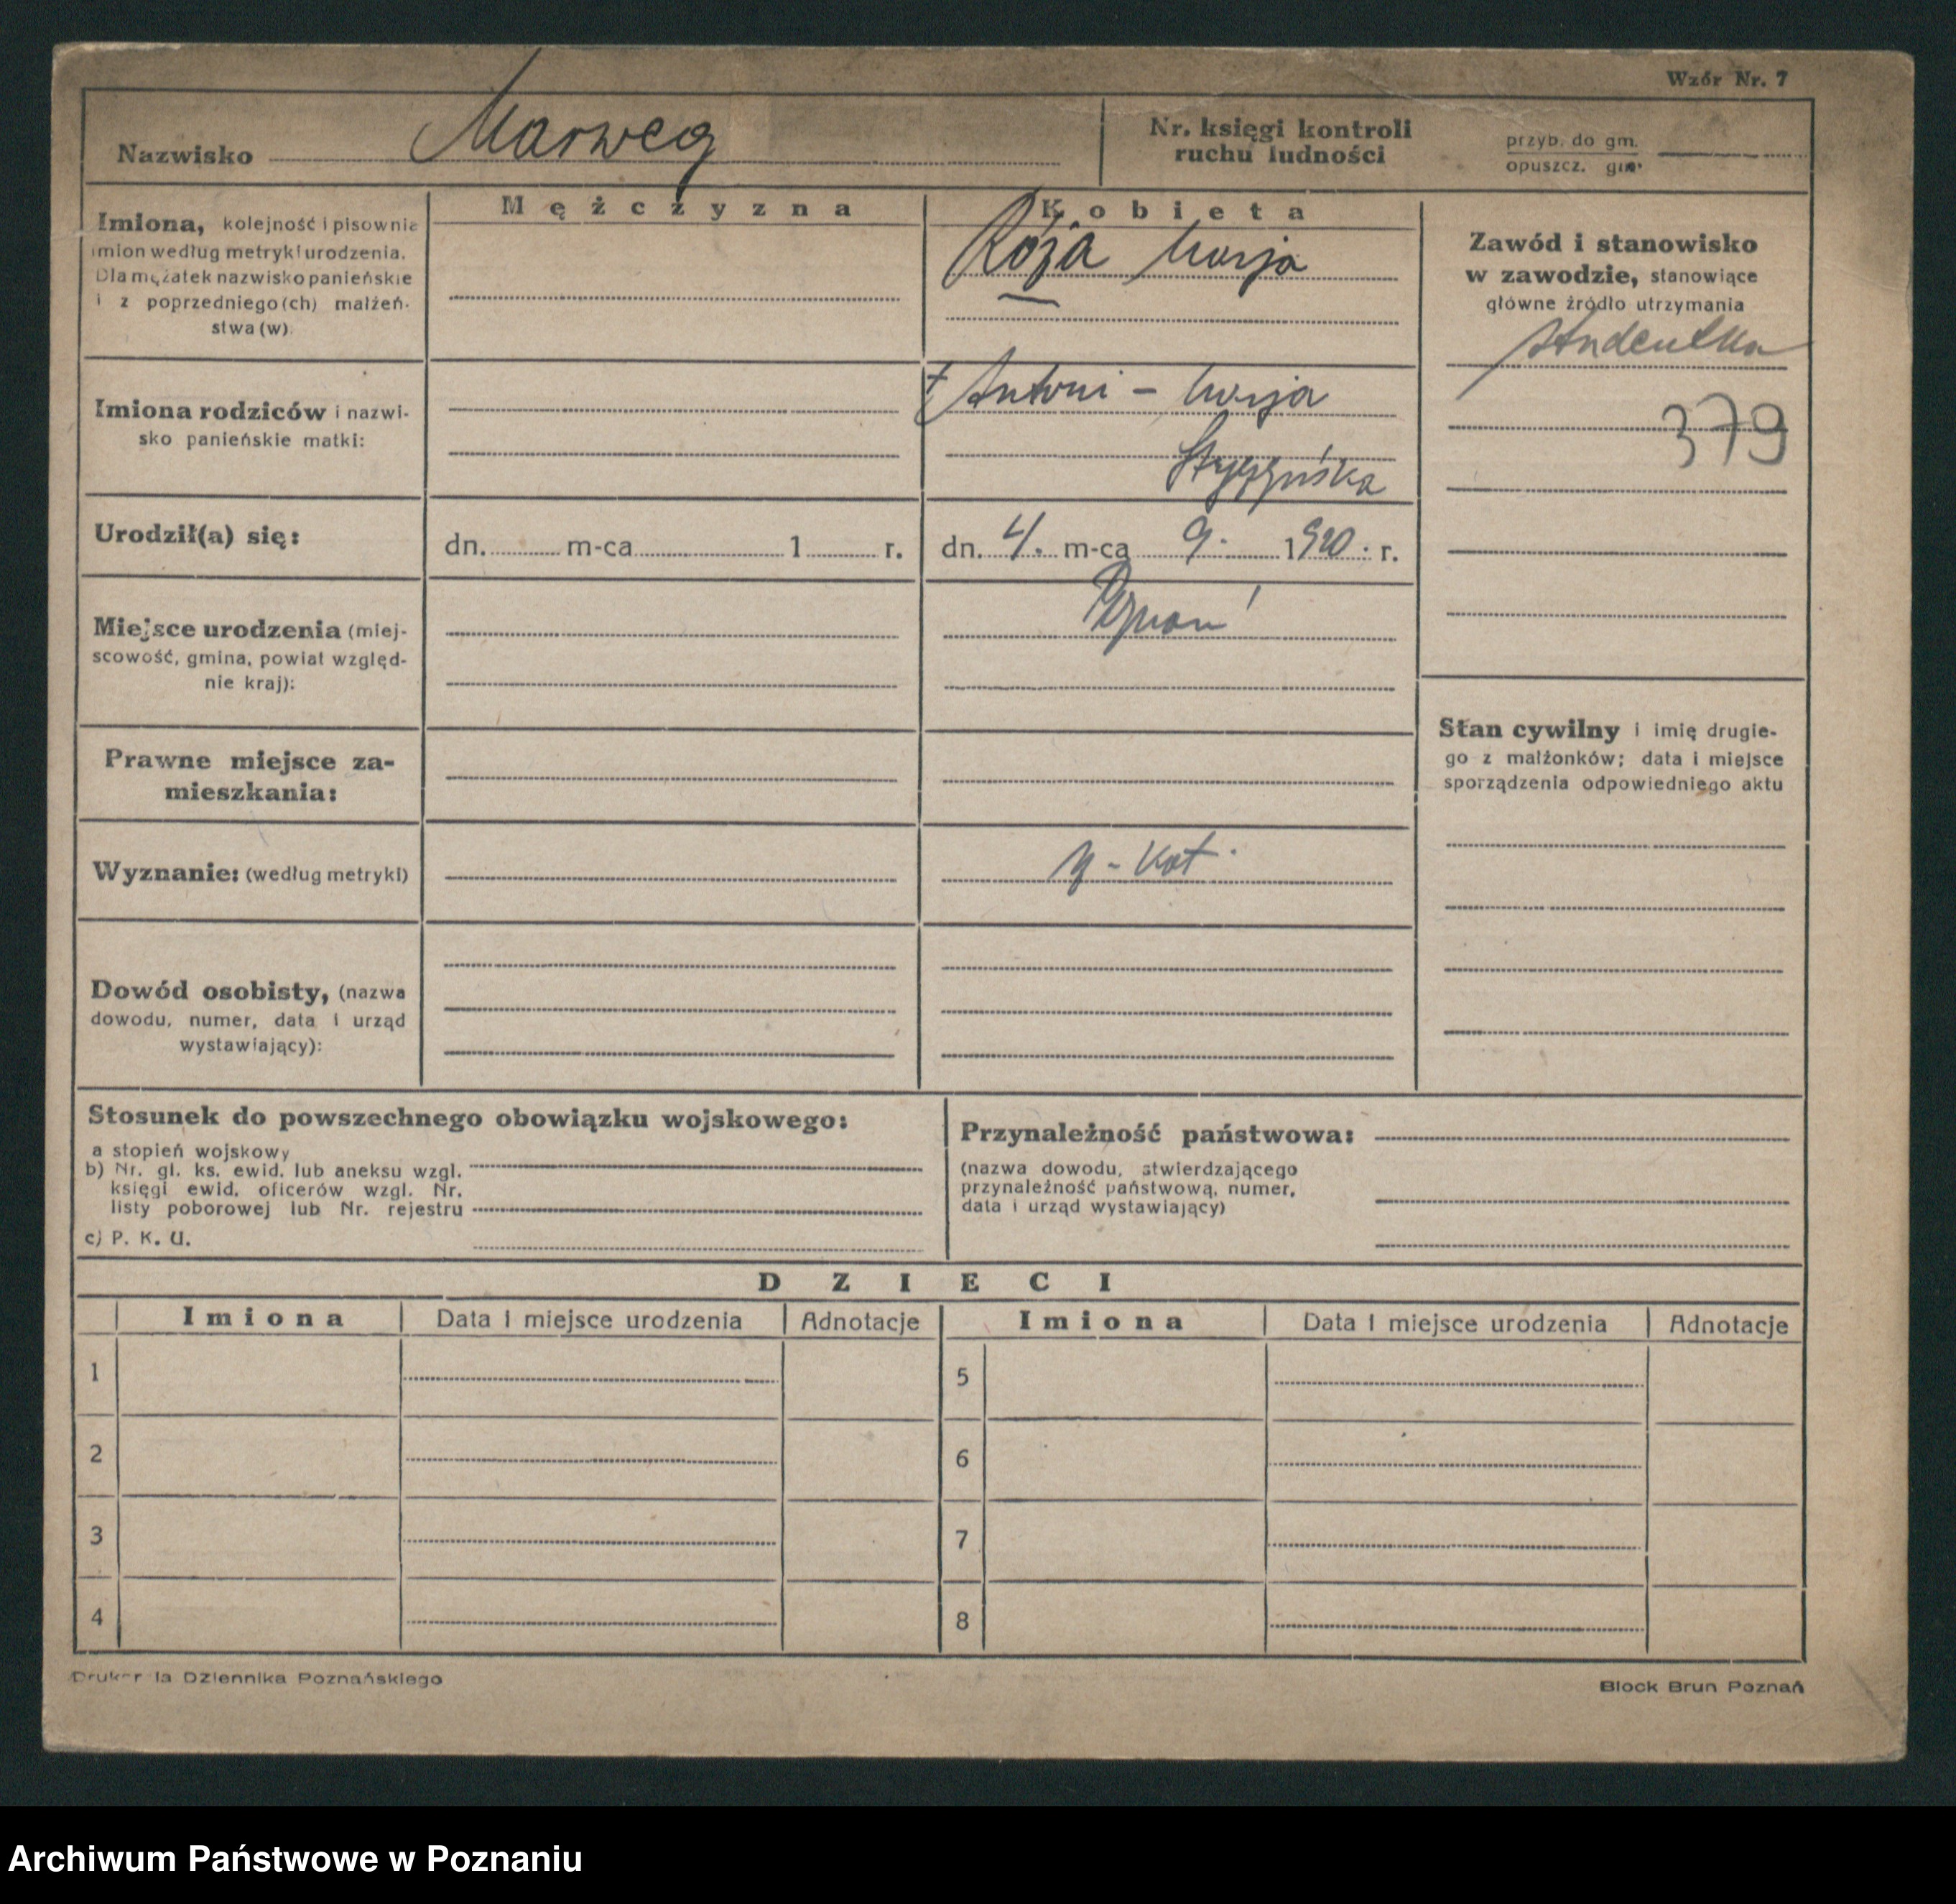 Wzór Nr. 7
Nazwisko Marweg
Nr. księgi kontroli
ruchu ludności
przyb. do gm.
opuszcz. gm.
Mężczyzna
Kobieta
Imiona, kolejność i pisownia
imion według metryki urodzenia.
Dla mężatek nazwisko panieńskie
i z poprzedniego(ch) małżeń-
stwa(w)
Róża Marja
Zawód i stanowisko
w zawodzie, stanowiące
główne źródło utrzymania
studentka
379
Imiona rodziców i nazwi-
sko panieńskie matki:
† Antoni - Marja
Urodził(a) się:
dn. m-ca 1 r.
dn. 4. m-ca 9. 1920. r.
Miejsce urodzenia (miej-
scowość, gmina, powiat względ-
nie kraj):
Poznań
Prawne miejsce za-
mieszkania:
Stan cywilny i imię drugie-
go z małżonków; data i miejsce
sporządzenia odpowiedniego aktu
Wyznanie: (według metryki)
rz-kat.
Dowód osobisty, (nazwa
dowodu, numer, data i urząd
wystawiający):
Stosunek do powszechnego obowiązku wojskowego:
a stopień wojskowy
b) Nr. gl. ks. ewid. lub aneksu wzgl.
księgi ewid. oficerów wzgl. Nr.
listy poborowej lub Nr. rejestru
c) P. K. U.
Przynależność państwowa:
(nazwa dowodu, stwierdzającego
przynależność państwową, numer,
data i urząd wystawiający)
DZIECI
Imiona Data i miejsce urodzenia Adnotacje Imiona Data i miejsce urodzenia Adnotacje
1 5
2 6
3 7
4 8
Drukarnia Dziennika Poznańskiego
Block Brun Poznań
Archiwum Państwowe w Poznaniu